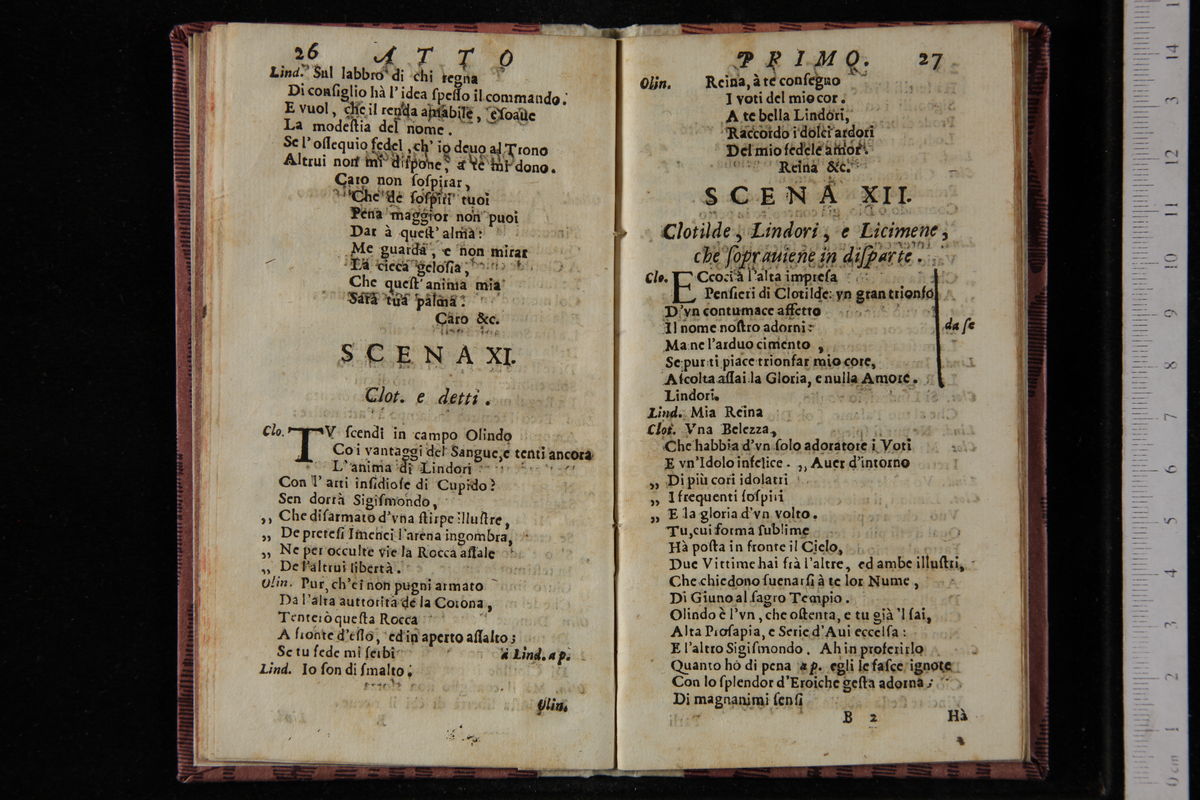 26 ATTO
Lind. Sul labbro di chi regna
Di consiglio hà l'idea ſpeſſo il commando.
E vuol, che il renda amabile, e ſoaue
La modeſtia del nome.
Se l'oſſequio fedel, ch'io deuo al Trono
Altrui non mi diſpone, a te mi dono.
Caro non ſoſpirar,
Che de ſoſpiri tuoi
Pena maggior non puoi
Dar à queſt'alma:
Me guarda, e non mirar
La cieca geloſia,
Che queſt'anima mia
Sarà tua palma.
Caro &c.
SCENA XI.
Clot. e detti.
Clo. TV ſcendi in campo Olindo
Co i vantaggi del Sangue, e tenti ancora
L'anima di Lindori
Con l'arti inſidioſe di Cupido?
Sen dorrà Sigiſmondo,
,, Che diſarmato d'vna ſtirpe illuſtre,
,, De preteſi Imenei l'arena ingombra,
,, Ne per occulte vie la Rocca aſſale
,, De l'altrui libertà.
Olin. Pur, ch'ei non pugni armato
Da l'alta auttorità de la Corona,
Tenterò queſta Rocca
A fronte d'eſſo, ed in aperto aſſalto;
Se tu fede mi ſerbi a Lind. a p.
Lind. Io ſon di ſmalto.
Olin.
PRIMO. 27
Olin. Reina, à te conſegno
I voti del mio cor.
A te bella Lindori,
Raccordo i dolci ardori
Del mio fedele amor.
Reina &c.
SCENA XII.
Clotilde, Lindori, e Licimene,
che ſoprauiene in diſparte.
Clo. ECcoci à l'alta impreſa
Penſieri di Clotilde: vn gran trionfo
D'vn contumace affetto
Il nome noſtro adorni: da ſe
Ma ne l'arduo cimento,
Se pur ti piace trionfar mio core,
Aſcolta aſſai la Gloria, e nulla Amore.
Lindori.
Lind. Mia Reina
Clot. Vna Belezza,
Che habbia d'vn ſolo adoratore i Voti
E vn'Idolo infelice. ,, Auer d'intorno
,, Di più cori idolatri
,, I frequenti ſoſpiri
,, E la gloria d'vn volto.
Tu, cui forma ſublime
Hà poſta in fronte il Cielo,
Due Vittime hai frà l'altre, ed ambe illuſtri,
Che chiedono ſuenarſi à te lor Nume,
Di Giuno al ſagro Tempio.
Olindo è l'vn, che oſtenta, e tu già 'l ſai,
Alta Proſapia, e Serie d'Aui eccelſa:
E l'altro Sigiſmondo. Ah in proferirlo
Quanto hò di pena a p. egli le faſce ignote
Con lo ſplendor d'Eroiche geſta adorna;
Di magnanimi ſenſi
B 2 Hà